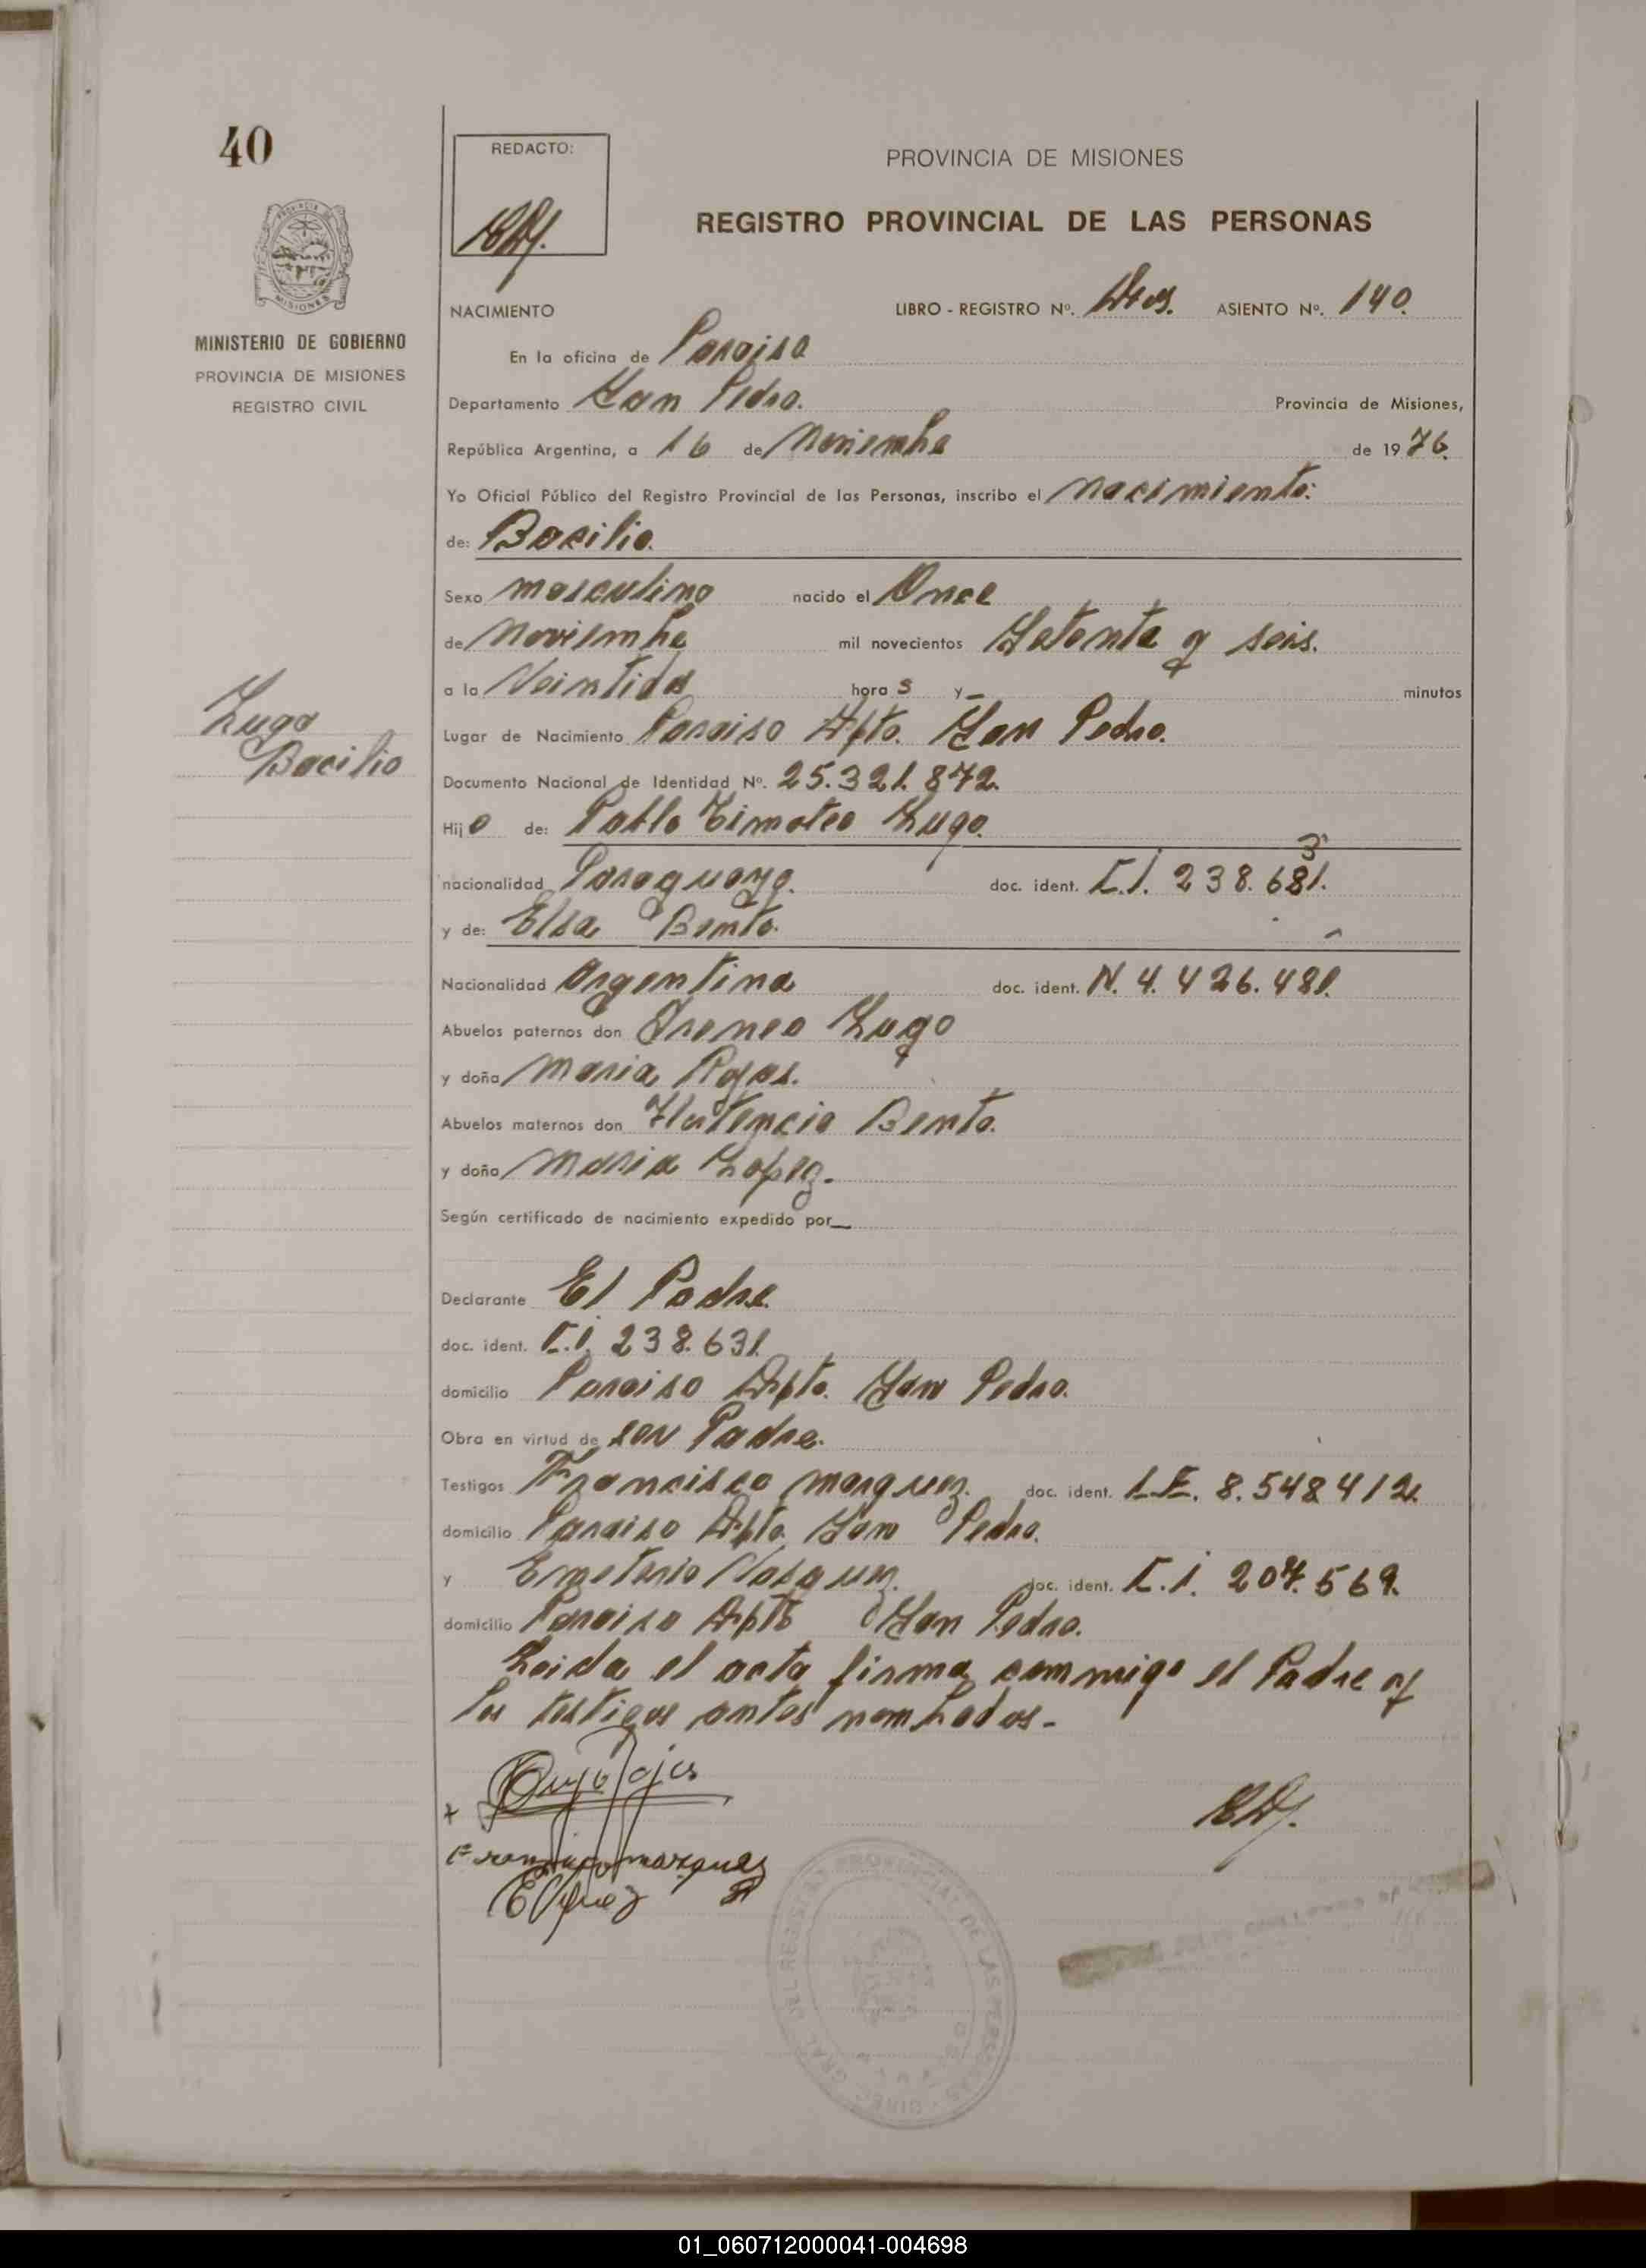 40
REDACTO:
PROVINCIA DE MISIONES
REGISTRO PROVINCIAL DE LAS PERSONAS
MISIONES
MINISTERIO DE GOBIERNO
PROVINCIA DE MISIONES
REGISTRO CIVIL
NACIMIENTO LIBRO - REGISTRO Nº. Dos. ASIENTO Nº. 140.
En la oficina de Paraiso
Departamento San Pedro. Provincia de Misiones,
República Argentina, a 16 de Noviembre de 1976.
Yo Oficial Público del Registro Provincial de las Personas, inscribo el nacimiento:
de: Bacilio.
Sexo masculino nacido el Once
de Noviembre mil novecientos Setenta y seis.
a la Veintidos hora s y — minutos
Lugo
Bacilio
Lugar de Nacimiento Paraiso Dpto. San Pedro.
Documento Nacional de Identidad Nº. 25.321.872.
Hijo de: Pablo Timoteo Lugo.
3
nacionalidad Paraguaya. doc. ident. C.I. 238.681.
y de: Elsa Bento.
Nacionalidad Argentina doc. ident. N. 4.426.481.
Abuelos paternos don Ireneo Lugo
y doña Maria Rojas.
Abuelos maternos don Bento.
y doña Maria Lopez.
Según certificado de nacimiento expedido por —
Declarante El Padre.
doc. ident. C.I. 238.631.
domicilio Paraiso Dpto. San Pedro.
Obra en virtud de ser Padre.
Testigos Francisco Marquez. doc. ident. L.E. 8.548412.
domicilio Paraiso Dpto. San Pedro.
y Emeterio Vasquez. doc. ident. C.I. 207.569.
domicilio Paraiso Dpto San Pedro.
Leida el acta firma conmigo el Padre y
los testigos antes nombrados.-
Francisco marquez